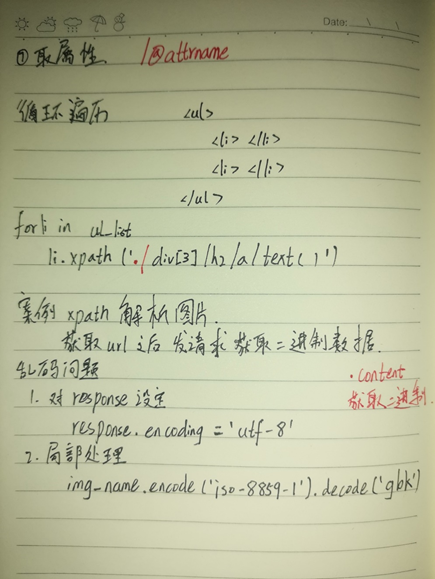 Date:
①取属性 /@attrname
循环遍历 <ul>
<li> </li>
<li> </li>
</ul>
for li in ul_list
li.xpath('./div[3]/h2/a/text()')
案例 xpath 解析图片.
获取url之后 发请求 获取二进制数据.
乱码问题
·content
1. 对 response 设定 获取二进制.
response.encoding = 'utf-8'
2. 局部处理
img_name.encode('iso-8859-1').decode('gbk')